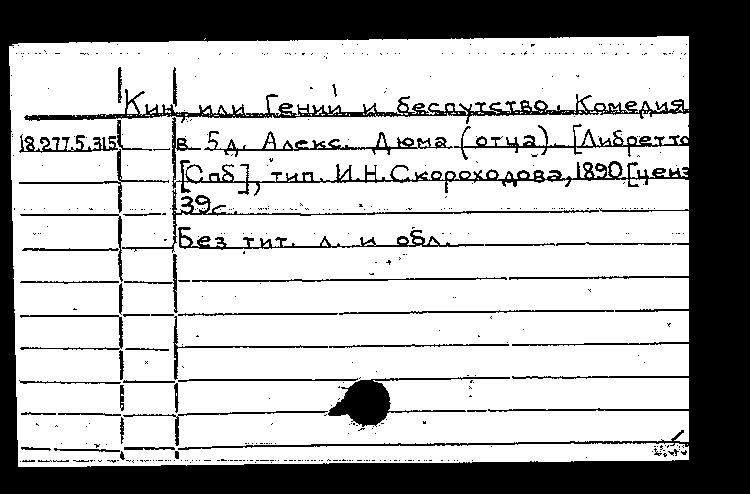 Кин, или Гений и беспутство. Комедия
18.277.5.315 в 5 д. Алекс. Дюма (отца). [Либретто
[Спб], тип. И.Н.Скороходова, 1890 [ценз
39с.
Без тит. л. и обл.